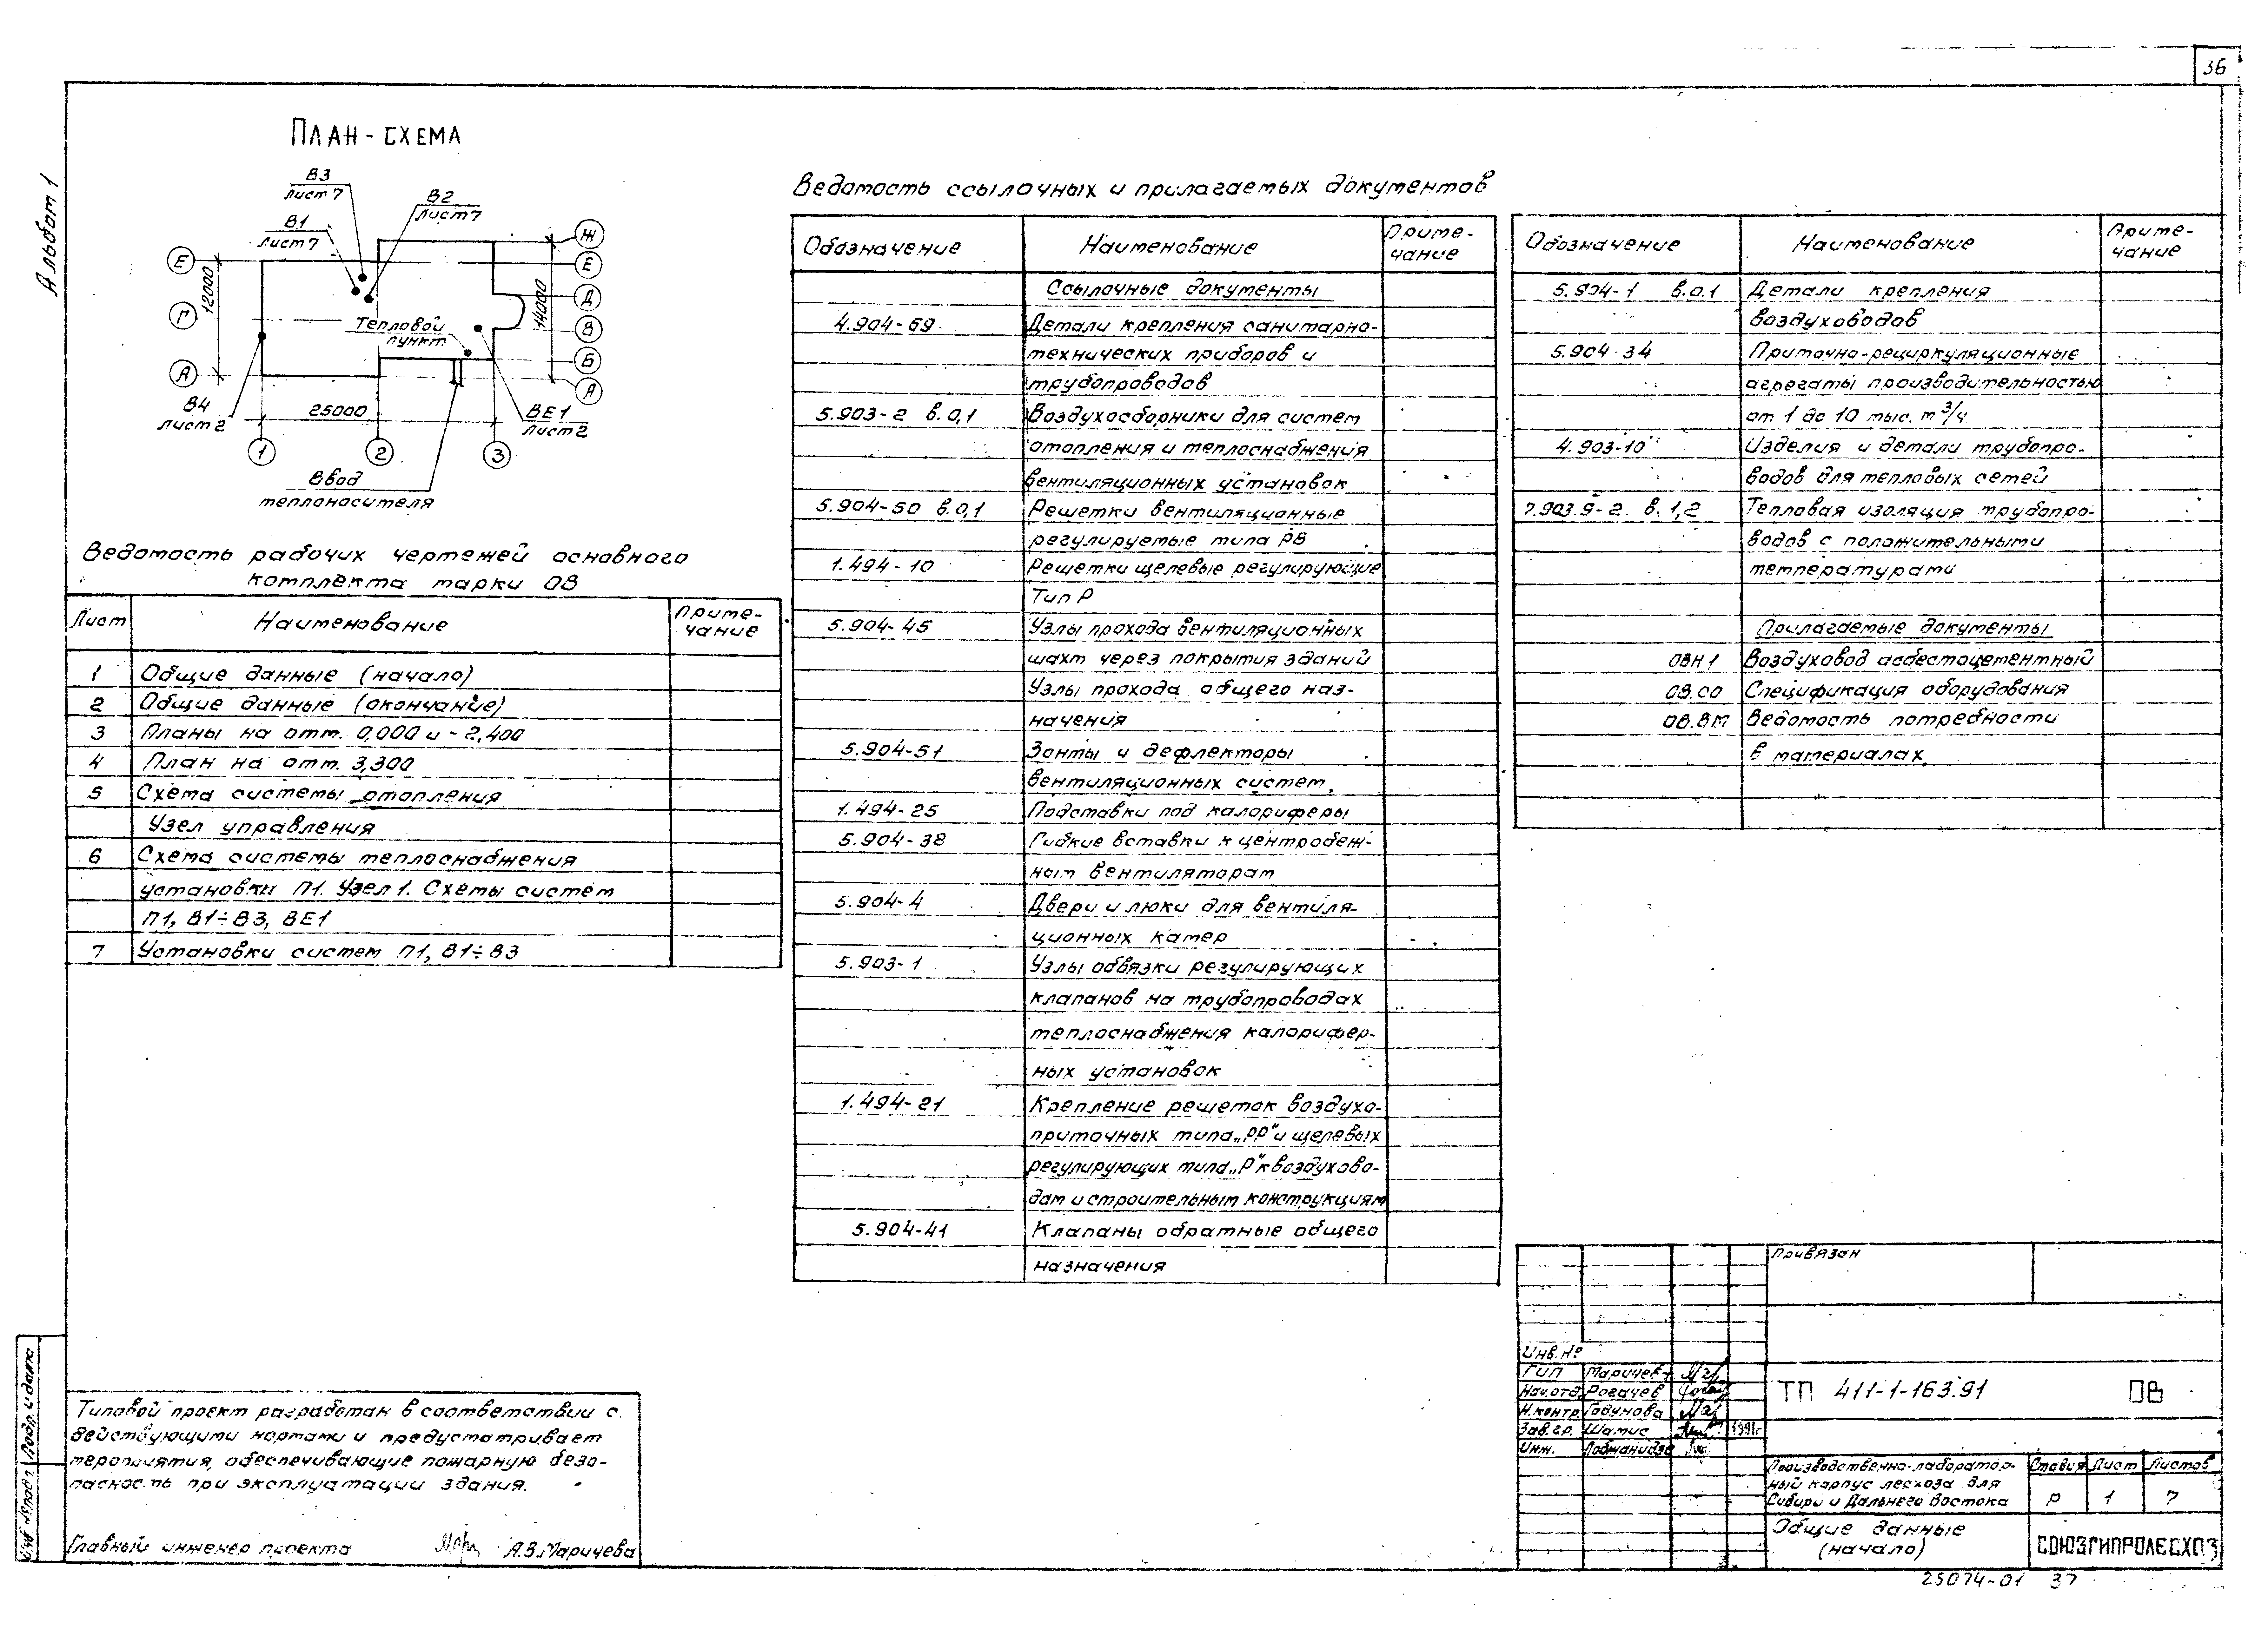 36
Альбом 1
ПЛАН-СХЕМА
В3
Лист 7
В2
Лист 7
В1
Лист 7
Ж
Е
Е
Д
Г
В
Б
А
А
12000
14000
Тепловой
пункт
В4
Лист 2
25000
ВЕ1
Лист 2
1
2
3
Ввод
теплоносителя
Ведомость рабочих чертежей основного
комплекта марки ОВ
Лист Наименование Приме-
чание
1 Общие данные (начало)
2 Общие данные (окончание)
3 Планы на отм. 0,000 и -2,400
4 План на отм. 3,300
5 Схема системы отопления
Узел управления
6 Схема системы теплоснабжения
установки П1. Узел 1. Схемы систем
П1, В1÷В3, ВЕ1
7 Установки систем П1, В1÷В3
Ведомость ссылочных и прилагаемых документов
Обозначение Наименование Приме-
чание
Ссылочные документы
4.904-69 Детали крепления санитарно-
технических приборов и
трубопроводов
5.903-2 в.0,1 Воздухосборники для систем
отопления и теплоснабжения
вентиляционных установок
5.904-50 в.0,1 Решетки вентиляционные
регулируемые типа РВ
1.494-10 Решетки щелевые регулирующие
Тип Р
5.904-45 Узлы прохода вентиляционных
шахт через покрытия зданий
Узлы прохода общего наз-
начения
5.904-51 Зонты и дефлекторы
вентиляционных систем.
1.494-25 Подставки под калориферы
5.904-38 Гибкие вставки к центробеж-
ным вентиляторам
5.904-4 Двери и люки для вентиля-
ционных камер
5.903-1 Узлы обвязки регулирующих
клапанов на трубопроводах
теплоснабжения калорифер-
ных установок
1.494-21 Крепление решеток воздухо-
приточных типа „РР" и щелевых
регулирующих типа „Р" к воздухово-
дам и строительным конструкциям
5.904-41 Клапаны обратные общего
назначения
Обозначение Наименование Приме-
чание
5.904-1 в.0.1 Детали крепления
воздуховодов
5.904-34 Приточно-рециркуляционные
агрегаты производительностью
от 1 до 10 тыс. м³/ч
4.903-10 Изделия и детали трубопро-
водов для тепловых сетей
7.903.9-2 в.1,2 Тепловая изоляция трубопро-
водов с положительными
температурами
Прилагаемые документы
ОВН1 Воздуховод асбестоцементный
ОВ.СО Спецификация оборудования
ОВ.ВМ Ведомость потребности
в материалах
Типовой проект разработан в соответствии с
действующими нормами и предусматривает
мероприятия, обеспечивающие пожарную безо-
пасность при эксплуатации здания.
Главный инженер проекта А.В.Маричева
Инв. № подл. Подр. и дата
Привязан
Инв. №
ГИП Маричева
Нач.отд. Рогачев
Н.контр Годунова
Зав.гр. Шамис 1991г
Инж.
ТП 411-1-163.91 ОВ
Производственно-лаборатор-
ный корпус лесхоза для
Сибири и Дальнего Востока
Стадия Лист Листов
Р 1 7
Общие данные
(начало)
СОЮЗГИПРОЛЕСХОЗ
25074-01 37